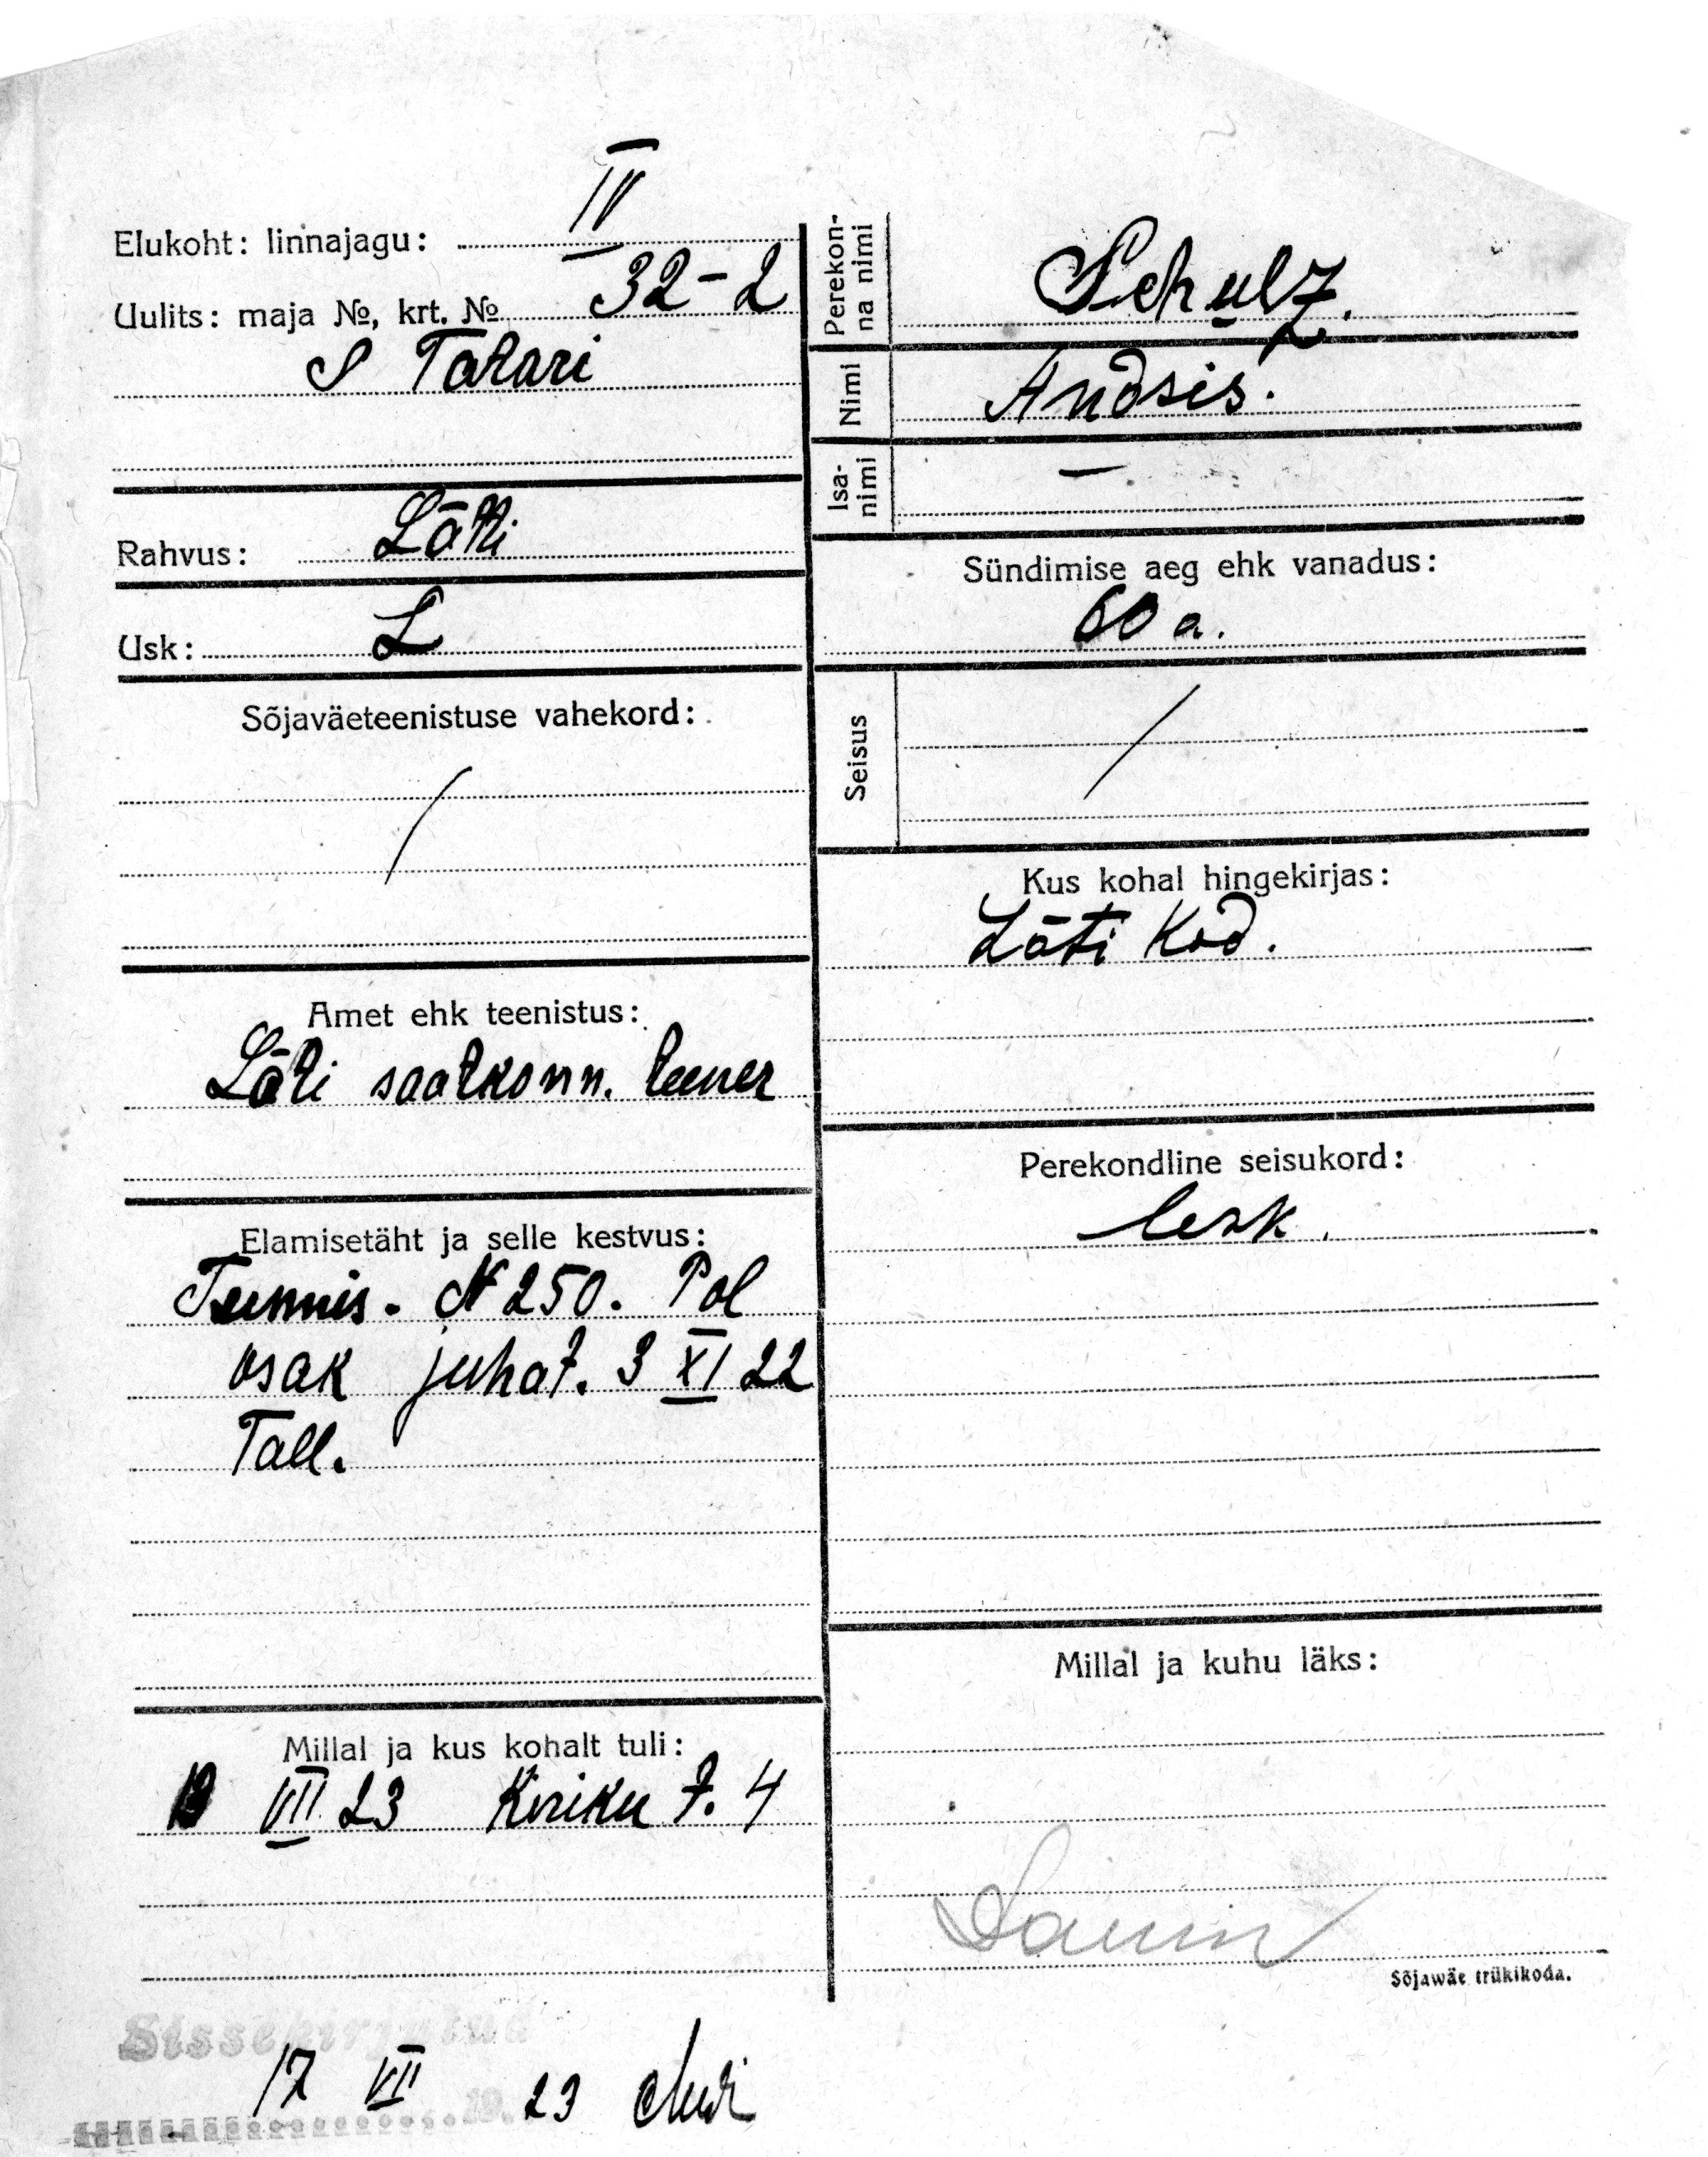 Elukoht: linnajagu: IV
Uulits: maja №, krt. № 32-2
S Tatari
Rahvus: Läti
Usk: L
Sõjaväeteenistuse vahekord:
/
Amet ehk teenistus:
Läti saatkonn. teener
Elamisetäht ja selle kestvus:
Tunnis. N 250. Pol
osak juhat. 3 XI 22
Tall.
Millal ja kus kohalt tuli:
VII 23 Kiriku t. 4
Perekonna nimi
Schulz.
Nimi
Andsis.
Isanimi
—
Sündimise aeg ehk vanadus:
60 a.
Seisus
/
Kus kohal hingekirjas:
Läti Kod.
Perekondline seisukord:
lesk.
Millal ja kuhu läks:
Sõjawäe trükikoda.
Sissekirjutud
17 VII 23
19